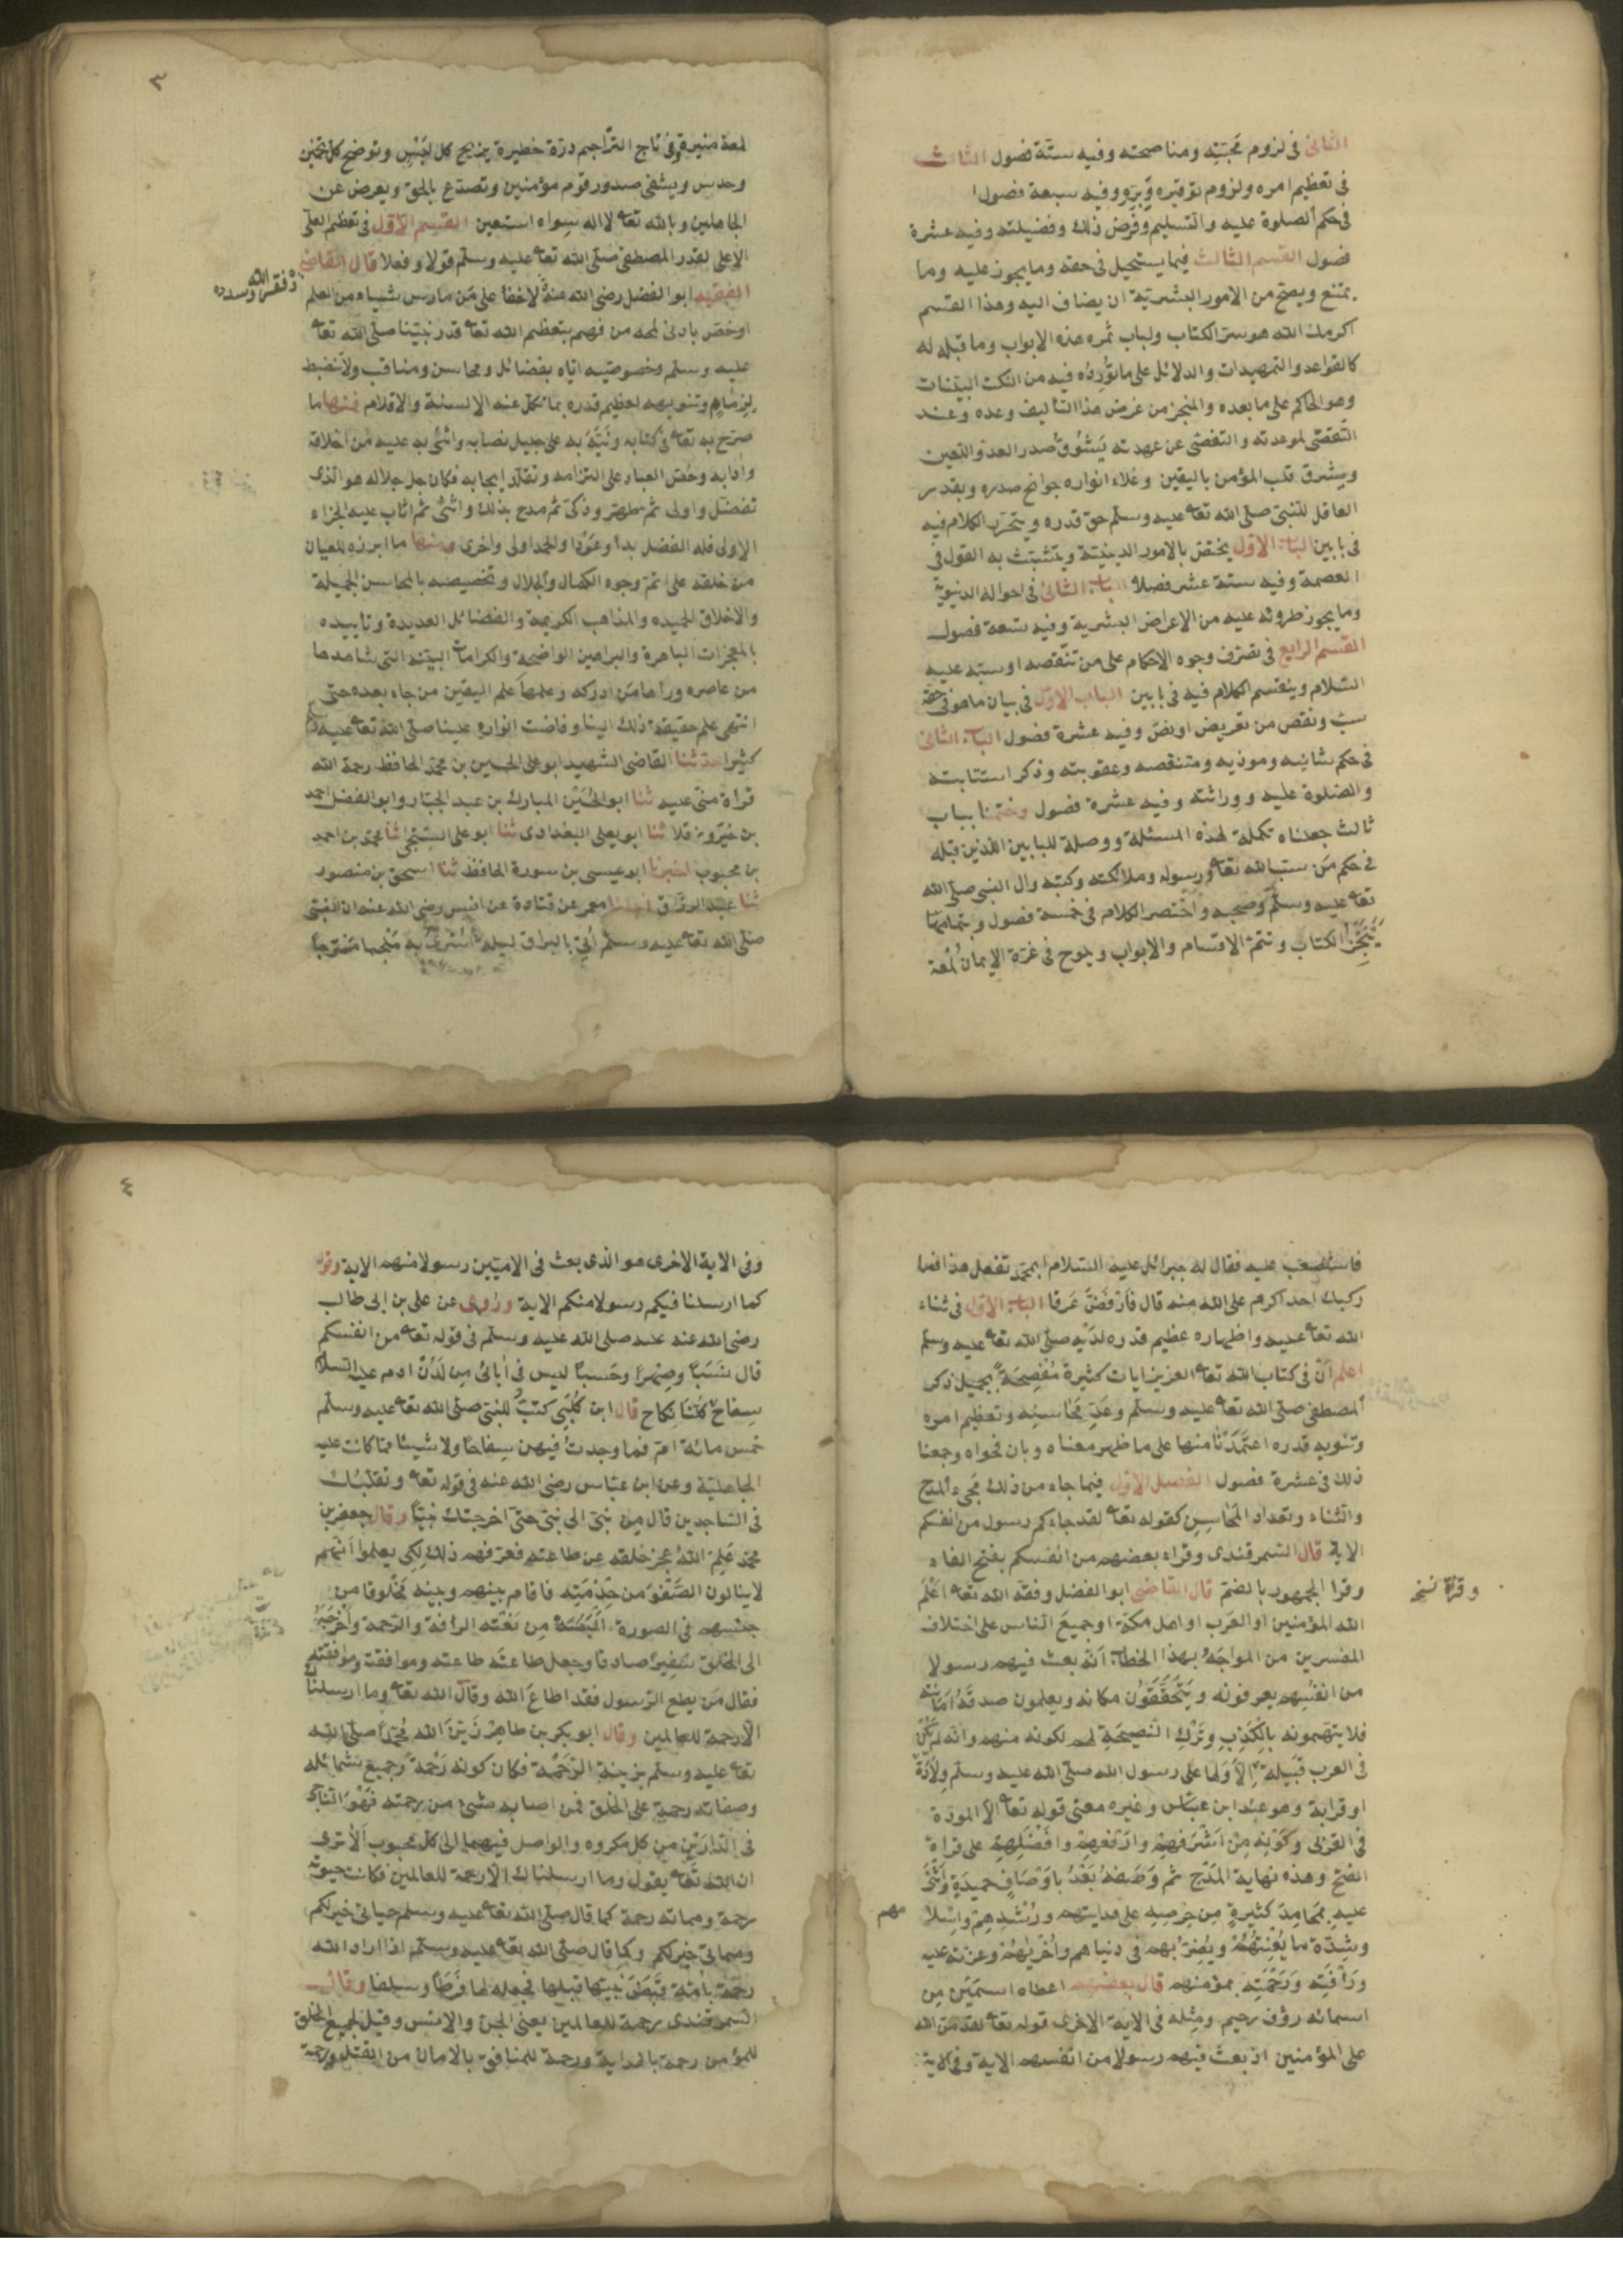 الثانى فى لزوم محبته ومناصحته وفيه ستة فصول الثالث
فى تعظيم امره ولزوم توقيره وبره وفيه سبعة فصول
فى حكم الصلوة عليه والتسليم وفرض ذلك وفضيلته وفيه عشرة
فصول القسم الثالث فيما يستحيل فى حقه وما يجوز عليه وما
يمتنع ويصح من الامور البشرية ان يضاف اليه وهذا القسم
اكرمك الله هو سر الكتاب ولباب ثمره هذه الابواب وما قبله له
كالقواعد والتمهيدات والدلائل على ما نورده فيه من النكت البينات
وهو الحاكم على ما بعده والمنجز من غرض هذا التأليف وعده وعند
التقصى لموعدته والتفصى عن عهدته يشوق صدر العدو اللعين
ويشرق قلب المؤمن باليقين وملاء انواره جوانح صدره ويقدر
العاقل للنبى صلى الله تعا عليه وسلم حق قدره ويتحرر الكلام فيه
فى بابين الباب الاول يختص بالامور الدينية ويتشبث به القول فى
العصمة وفيه ستة عشر فصلا الباب الثانى فى احواله الدنيوية
وما يجوز طروئه عليه من الاعراض البشرية وفيه تسعة فصول
القسم الرابع فى تصرف وجوه الاحكام على من تنقصه او سبه عليه
السلام وينقسم الكلام فيه فى بابين الباب الاول فى بيان ما هو فى حقه
سب ونقص من تعريض او نص وفيه عشرة فصول الباب الثانى
فى حكم شانيه وموذيه ومتنقصه وعقوبته وذكر استتابته
والصلوة عليه ووراثته وفيه عشرة فصول وختمنا بباب
ثالث جعلناه تكملة لهذه المسئلة ووصلة للبابين اللذين قبله
فى حكم من سب الله تعا ورسوله وملائكته وكتبه وال النبى صلى الله
تعا عليه وسلم وصحبه واختصر الكلام فى خمسة فصول وبتمامها
ينتجز الكتاب وتتم الاقسام والابواب ويلوح فى غرة الايمان لمعة
٣
لمعة منيرة وفى تاج التراجم درة خطيرة يزيح كل لبس وتوضح كل تخمين
وحدس ويشفى صدور قوم مؤمنين وتصدع بالحق ويعرض عن
الجاهلين وبالله تعا لا اله سواه استعين القسم الاول فى تعظيم العلى
الاعلى لقدر المصطفى صلى الله تعا عليه وسلم قولا وفعلا قال القاضى
وفقه الله وسدده
الفقيه ابو الفضل رضى الله عنه لا خفأ على من مارس شيئا من العلم
او خص بادنى لمحه من فهم بتعظيم الله تعا قدر نبينا صلى الله تعا
عليه وسلم وخصوصيه اياه بفضائل ومحاسن ومناقب ولا تنضبط
لزمام وتنويهه لعظيم قدره بما تكل عنه الالسنة والاقلام فمنها ما
صرح به تعا فى كتابه ونبه به على جميل نصابه واثنى به عليه من اخلاقه
وادابه وحض العباد على التزامه وتقلد ايجابه فكان جل جلاله هو الذى
تفضل واولى ثم طهر وزكى ثم مدح بذلك واثنى ثم اثاب عليه الجزاء
الاوفى فله الفضل بدأ وعودا والحمد اولى واخرى ومنها ما ابرزه للعيان
من خلقه على اتم وجوه الكمال والجلال وتخصيصه بالمحاسن الجميلة
والاخلاق الحميده والمذاهب الكريمة والفضائل العديدة وتأييده
بالمعجزات الباهرة والبراهين الواضحة والكرامات البينه التى شاهدها
من عاصره ورأها من ادركه وعلمها علم اليقين من جاء بعده حتى
انتهى علم حقيقة ذلك الينا وفاضت انواره علينا صلى الله تعا عليه وسلم
كثيرا حدثنا القاضى الشهيد ابو على الحسين بن محمد الحافظ رحمة الله
قراة منى عليه ثنا ابو الحسين المبارك بن عبد الجبار وابو الفضل احمد
بن خيرون قلا ثنا ابو يعلى البغدادى ثنا ابو على السنجى ثنا محمد بن احمد
بن محبوب اخبرنا ابو عيسى بن سورة الحافظ ثنا اسحق بن منصور
ثنا عبد الرزاق اخبرنا معمر عن قتادة عن انس رضى الله عنه ان النبى
صلى الله تعا عليه وسلم اتى بالبراق ليلة اسرى به ملجما مسرجا
فاستصعب عليه فقال له جبرائل عليه السلام ابمحمد تفعل هذا فما
ركبك احد اكرم على الله منه قال فارفض عرقا الباب الاول فى ثناء
الله تعا عليه واظهاره عظيم قدره لديه صلى الله تعا عليه وسلم
اعلم ان فى كتاب الله تعا العزيز ايات كثيرة مفصحة بجميل ذكر
المصطفى صلى الله تعا عليه وسلم وعد محاسنه وتعظيم امره
وتنويه قدره اعتمدنا منها على ما ظهر معناه وبان فحواه وجمعنا
ذلك فى عشرة فصول الفصل الاول فيما جاء من ذلك مجىء المدح
والثناء وتعداد المحاسن كقوله تعا لقد جاءكم رسول من انفسكم
الاية قال السمرقندى وقراء بعضهم من انفسكم بفتح الفاء
وقراة نسخه
وقرا الجمهور بالضم قال القاضى ابو الفضل وفقه الله تعا اعلم
الله المؤمنين او العرب او اهل مكة او جميع الناس على اختلاف
المفسرين من المواجه بهذا الخطاب انه بعث فيهم رسولا
من انفسهم يعرفونه ويتحققون مكانه ويعلمون صدقه امانته
فلا يتهمونه بالكذب وترك النصيحة لهم لكونه منهم وانه لم تكن
فى العرب قبيلة الا ولها على رسول الله صلى الله عليه وسلم ولادة
او قرابة وهو عند ابن عباس وغيره معنى قوله تعا الا المودة
فى القربى وكونه من اشرفهم وارفعهم وافضلهم على قراة
الفتح وهذه نهاية المدح ثم وصفه بعد باوصاف حميدة واثنى
عليه بمحامد كثيرة من حرصه على هدايتهم ورشدهم واسلا
مهم
وشدة ما يعنتهم ويضر بهم فى دنياهم واخريهم وعزته عليه
ورافته ورحمته بمؤمنهم قال بعضهم اعطاه اسمين من
اسمائه رؤف رحيم ومثله فى الاية الاخرى قوله تعا لقد من الله
على المؤمنين اذ بعث فيهم رسولا من انفسهم الاية وفى الاية
٤
وفى الاية الاخرى هو الذى بعث فى الاميين رسولا منهم الاية وقوله
كما ارسلنا فيكم رسولا منكم الاية وروى عن على بن ابى طالب
رضى الله عنه عنه صلى الله عليه وسلم فى قوله تعا من انفسكم
قال نسبا وصهرا وحسبا ليس فى ابائى من لدن ادم عليه السلام
سفاح كلنا نكاح قال ابن كلبى كتبت للنبى صلى الله تعا عليه وسلم
خمس مائة ام فما وجدت فيهن سفاحا ولا شيئا مما كانت عليه
الجاهلية وعن ابن عباس رضى الله عنه فى قوله تعا وتقلبك
فى الساجدين قال من نبى الى نبى حتى اخرجتك نبيا وقال جعفر بن
محمد علم الله عجز خلقه عن طاعته فعرفهم ذلك لكى يعلموا انهم
لا ينالون الصفو من خدمته فاقام بينهم وبينه مخلوقا من
جنسهم فى الصورة البسه من نعته الرأفة والرحمة واخرجه
الى الخلق سفيرا صادقا وجعل طاعته طاعته وموافقته وموافقته
فقال من يطع الرسول فقد اطاع الله وقال الله تعا وما ارسلناك
الا رحمة للعالمين وقال ابو بكر بن طاهر زين الله محمدا صلى الله
تعا عليه وسلم بزينة الرحمة فكان كونه رحمة وجميع شمائله
وصفاته رحمة على الخلق فمن اصابه شىء من رحمته فهو الناجى
فى الدارين من كل مكروه والواصل فيهما الى كل محبوب الا ترى
ان الله تعا يقول وما ارسلناك الا رحمة للعالمين فكانت حيوته
رحمة ومماته رحمة كما قال صلى الله تعا عليه وسلم حياتى خير لكم
ومماتى خير لكم وكما قال صلى الله تعا عليه وسلم اذا اراد الله
رحمة بامة قبض نبيها قبلها فجعله لها فرطا وسلفا وقال
السمرقندى رحمة للعالمين يعنى الجن والانس وقيل لجميع الخلق
للمؤمن رحمة بالهداية ورحمة للمنافق بالامان من القتل ورحمة